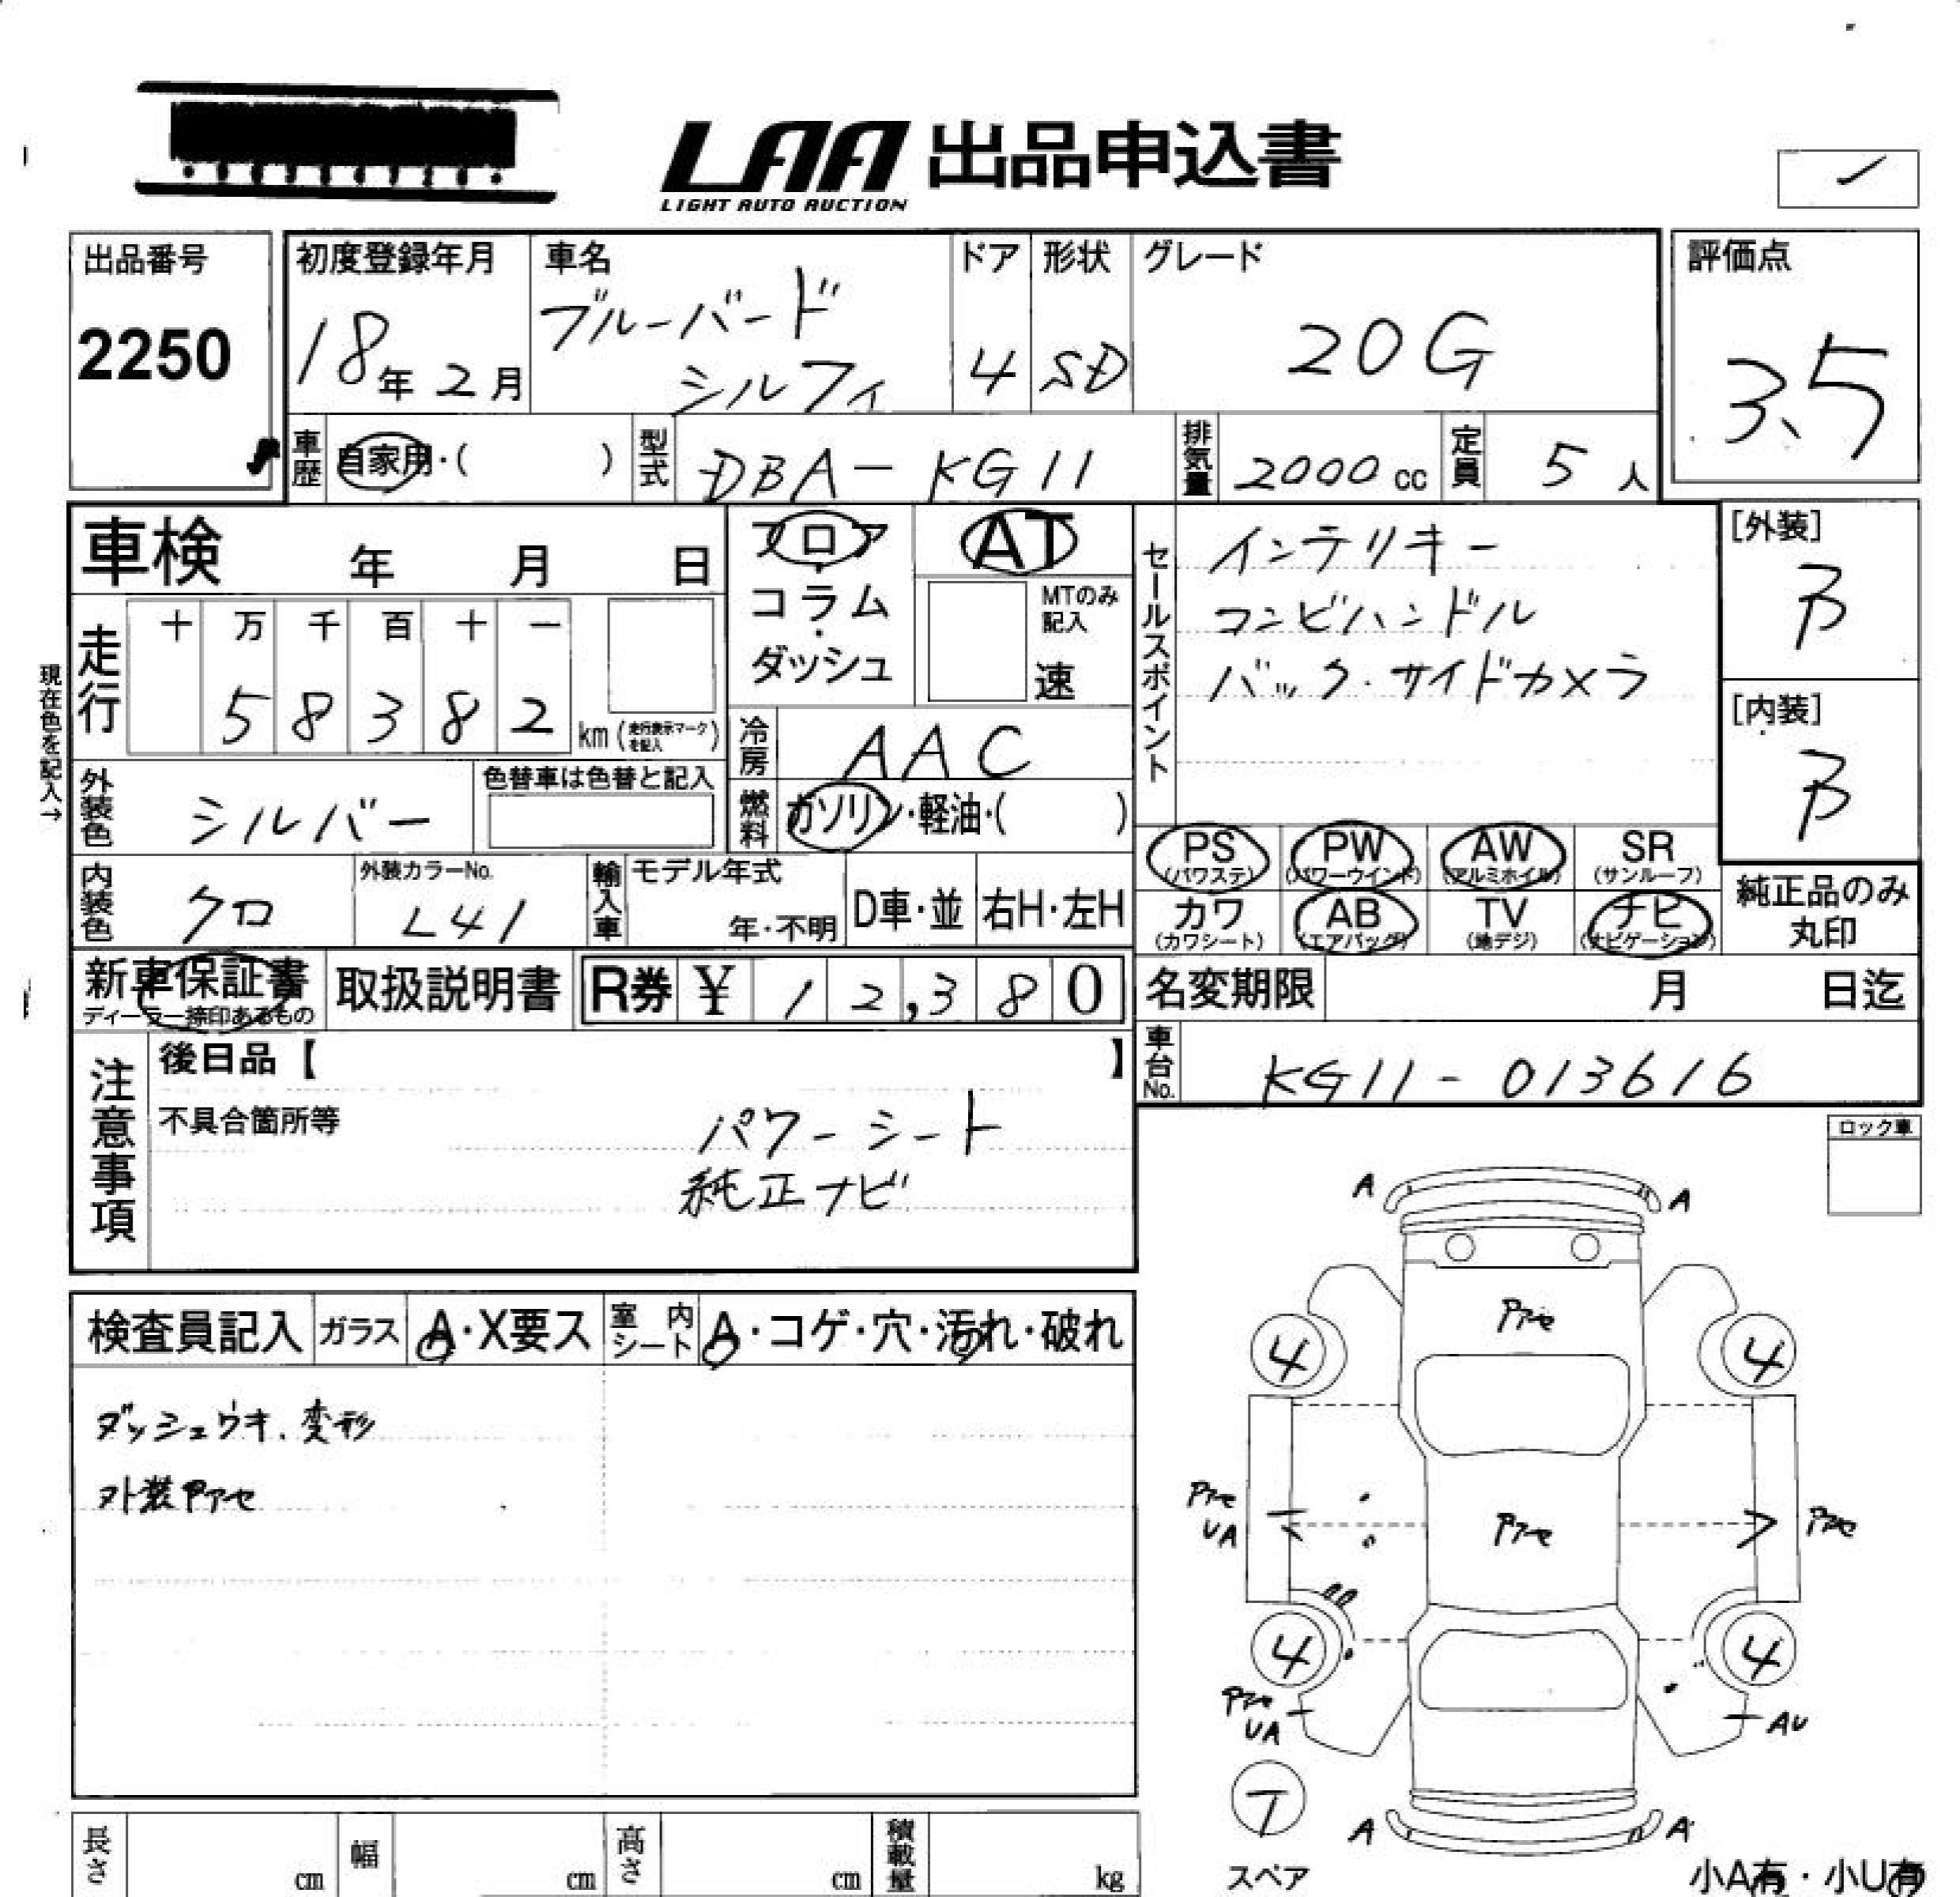 LAA 出品申込書
LIGHT AUTO AUCTION
出品番号
2250
初度登録年月
18年 2月
車名
ブルーバード
シルフィ
ドア
4
形状
SD
グレード
20G
評価点
3.5
車歴 自家用・( )
型式 DBA-KG11
排気量 2000 cc
定員 5 人
車検 年 月 日
フロア・
コラム・
ダッシュ
AT
MTのみ
記入
速
セールスポイント
インテリキー
コンビハンドル
バック・サイドカメラ
[外装]
B
[内装]
B
現在色を記入→
走行
十 万 千 百 十 一
5 8 3 8 2
km (走行表示マークを記入)
冷房 AAC
燃料 ガソリン・軽油・( )
外装色 シルバー
色替車は色替と記入
内装色 クロ
外装カラーNo.
L41
輸入車
モデル年式
年・不明
D車・並
右H・左H
PS
(パワステ)
PW
(パワーウインド)
AW
(アルミホイル)
SR
(サンルーフ)
カワ
(カワシート)
AB
(エアバッグ)
TV
(地デジ)
ナビ
(ナビゲーション)
純正品のみ
丸印
新車保証書
ディーラー捺印あるもの
取扱説明書
R券 ¥ 12,380
名変期限 月 日迄
車台No. KG11-013616
注意事項
後日品【 】
不具合箇所等
パワーシート
純正ナビ
ロック車
検査員記入
ガラス
A・X要ス
室内シート
A・コゲ・穴・汚れ・破れ
ダッシュウキ、変形
外装アセ
A A
アセ
4 4
アセ
UA
アセ
アセ
4 4
アセ
UA
AU
T
スペア
A A
長さ cm
幅 cm
高さ cm
積載量 kg
小A有・小U有